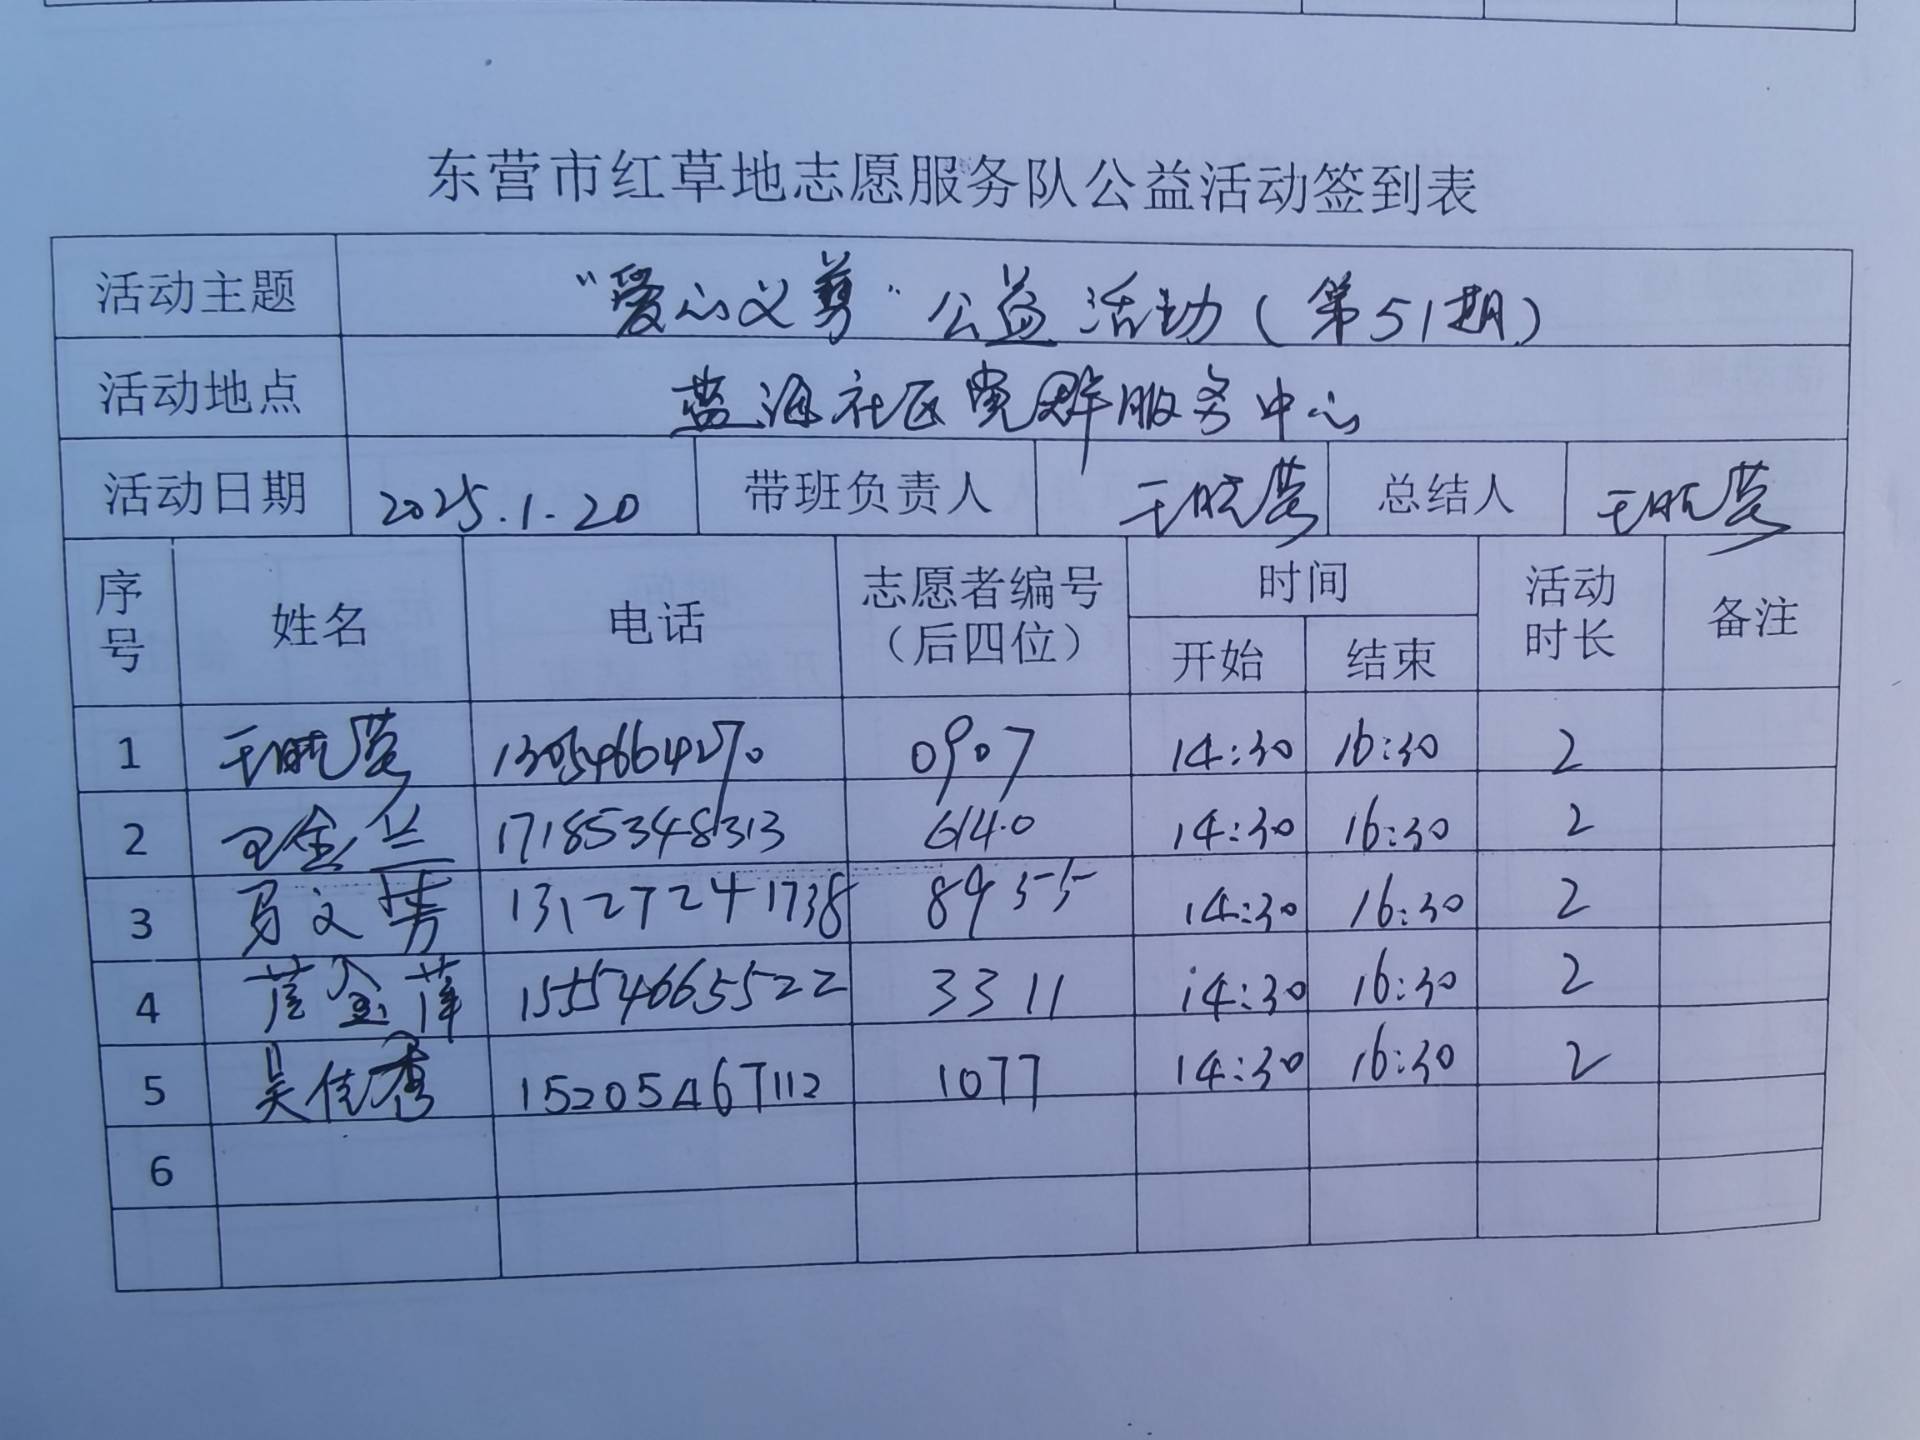 东营市红草地志愿服务队公益活动签到表
活动主题 "爱心义剪"公益活动(第51期)
活动地点 蓝海社区党群服务中心
活动日期 2025.1.20 带班负责人 王晓营 总结人 王晓营
序号 姓名 电话 志愿者编号（后四位） 时间 开始 结束 活动时长 备注
1 王晓营 13054664270 0907 14:30 16:30 2
2 王金兰 17185348313 6140 14:30 16:30 2
3 马文芳 13127241738 8955 14:30 16:30 2
4 金萍 15554665522 3311 14:30 16:30 2
5 吴佳秀 15205467112 1077 14:30 16:30 2
6